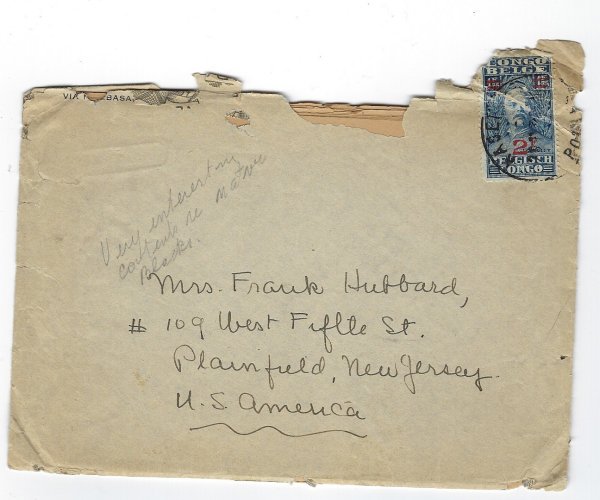 CONGO
BELGE
2
BELGISCH
CONGO
Very interesting
contents re native
Blacks.
Mrs. Frank Hubbard,
# 109 West Fifth St.
Plainfield, New Jersey.
U.S. America